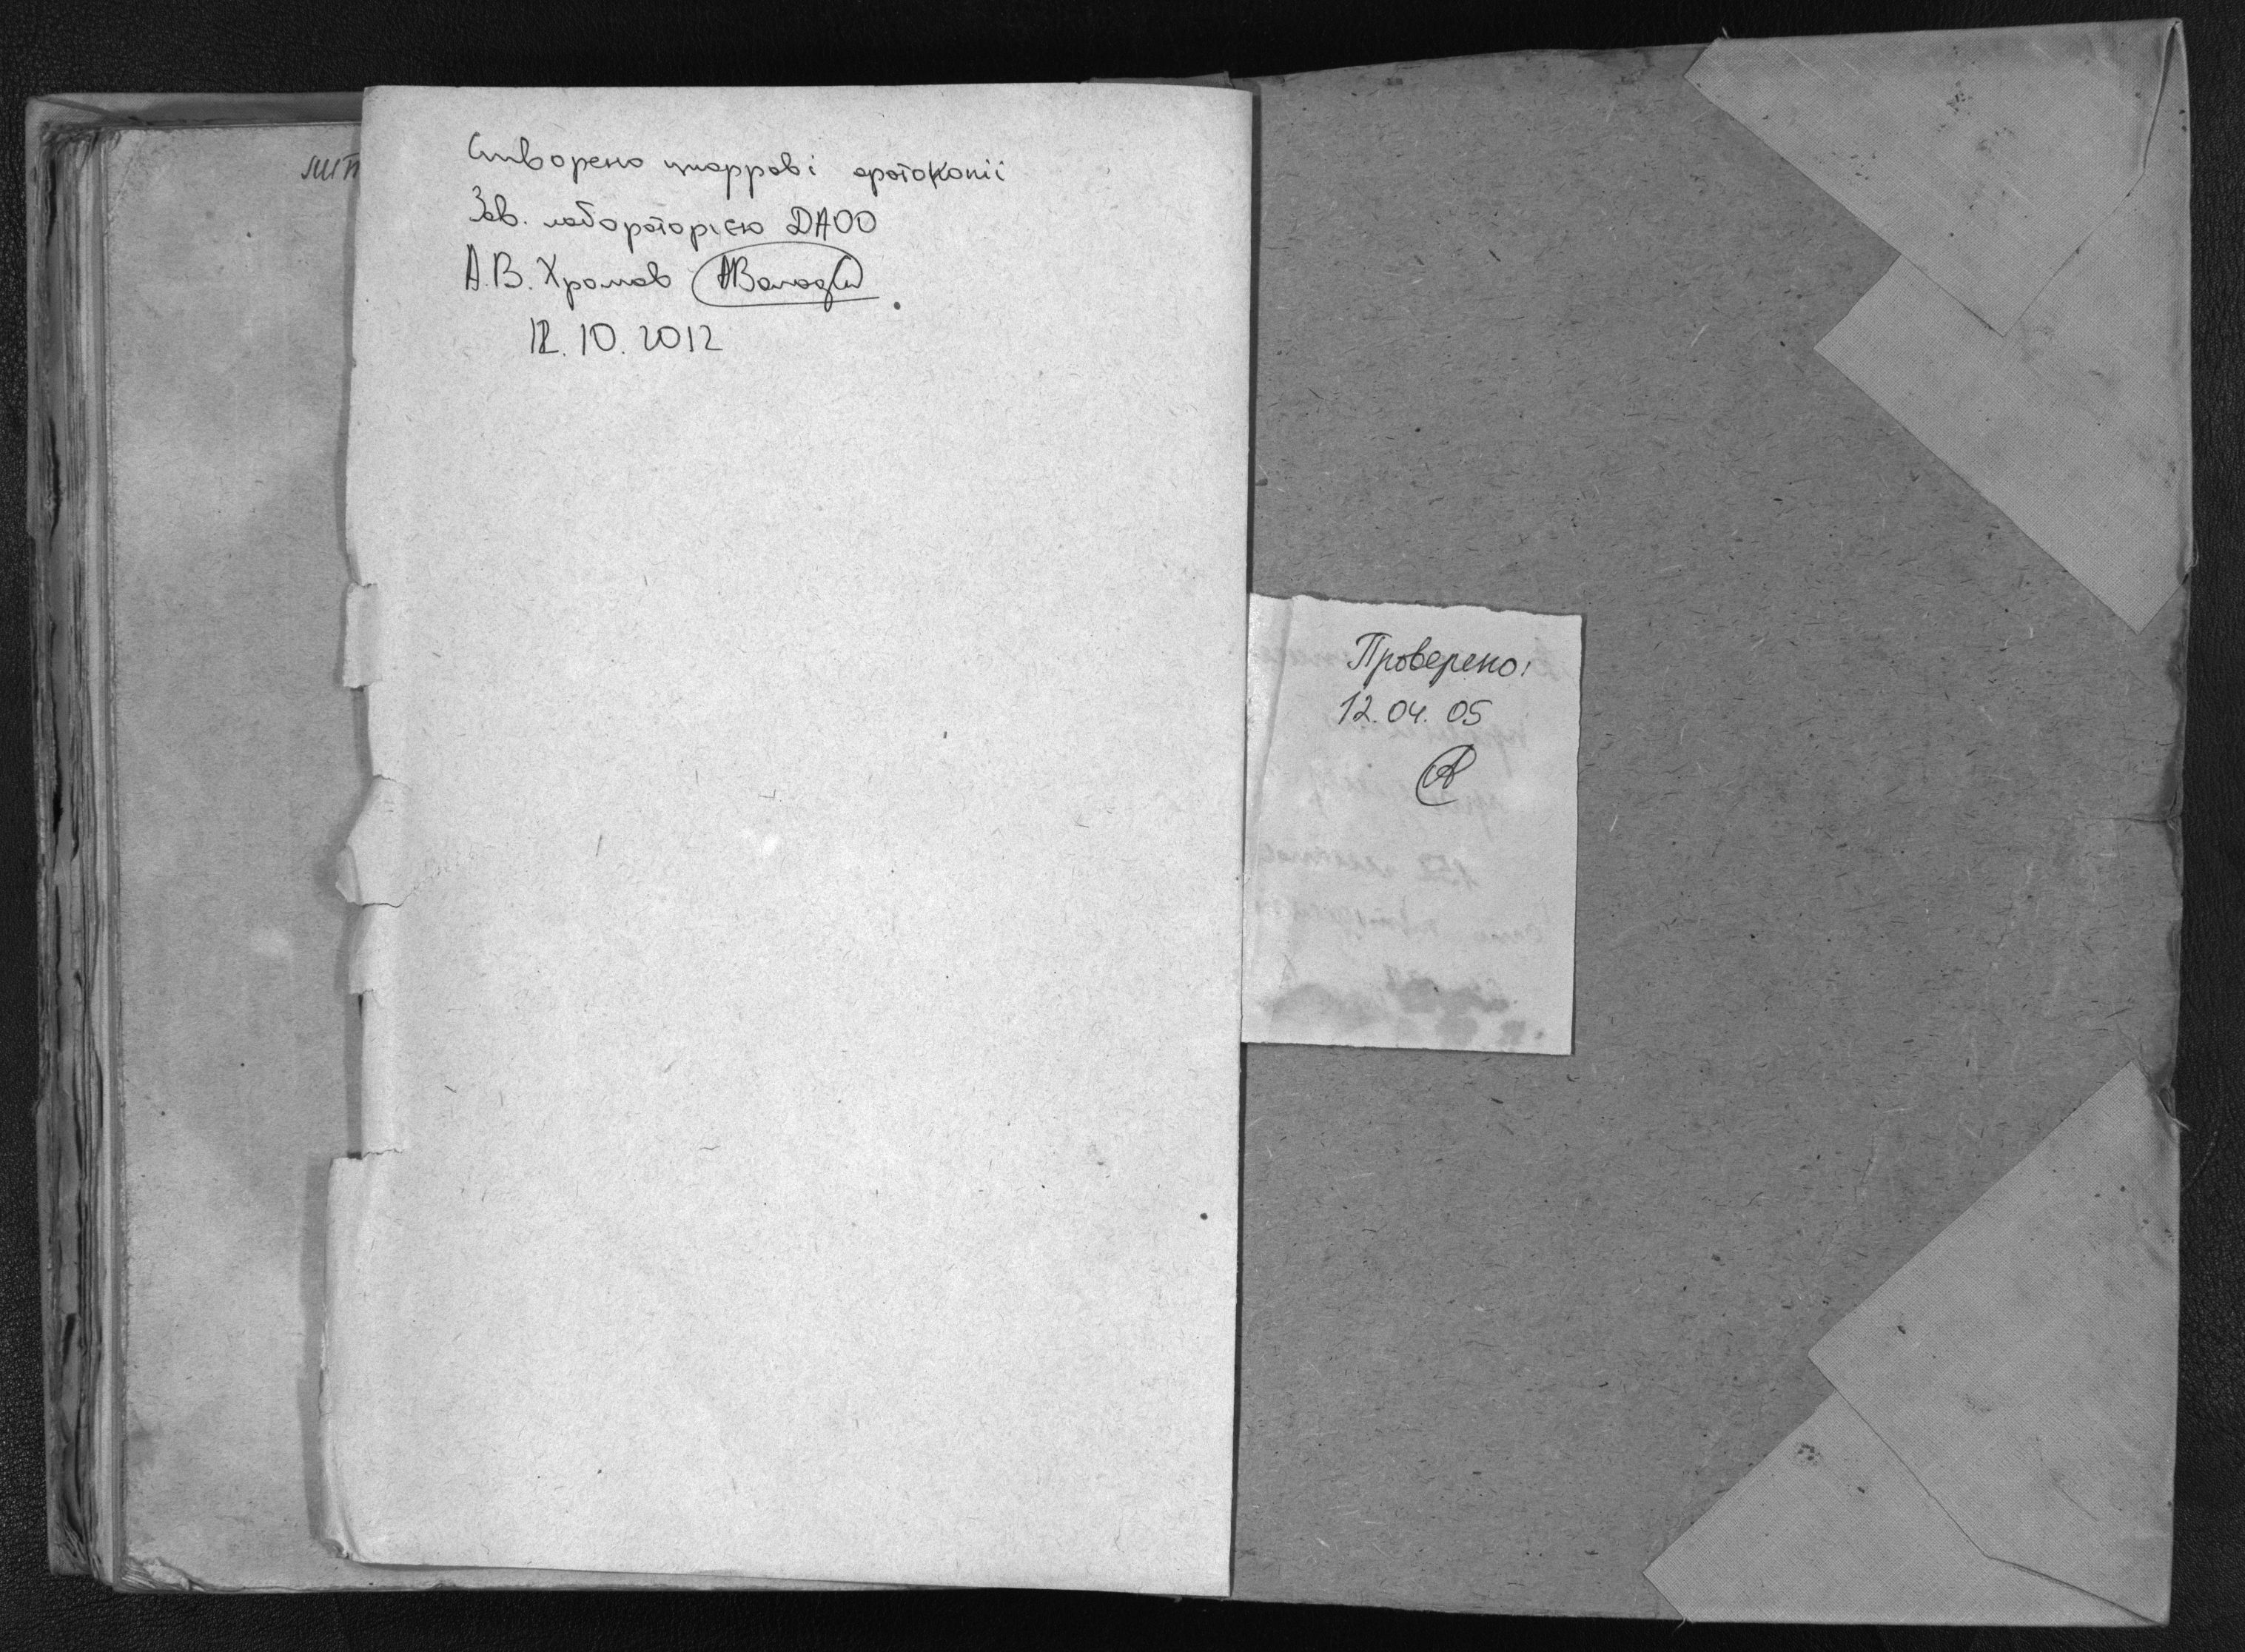 лит
Створено цифрові фотокопії
Зав. лабораторією ДАОО
А.В. Хромов
12.10.2012
Проверено:
12.04.05